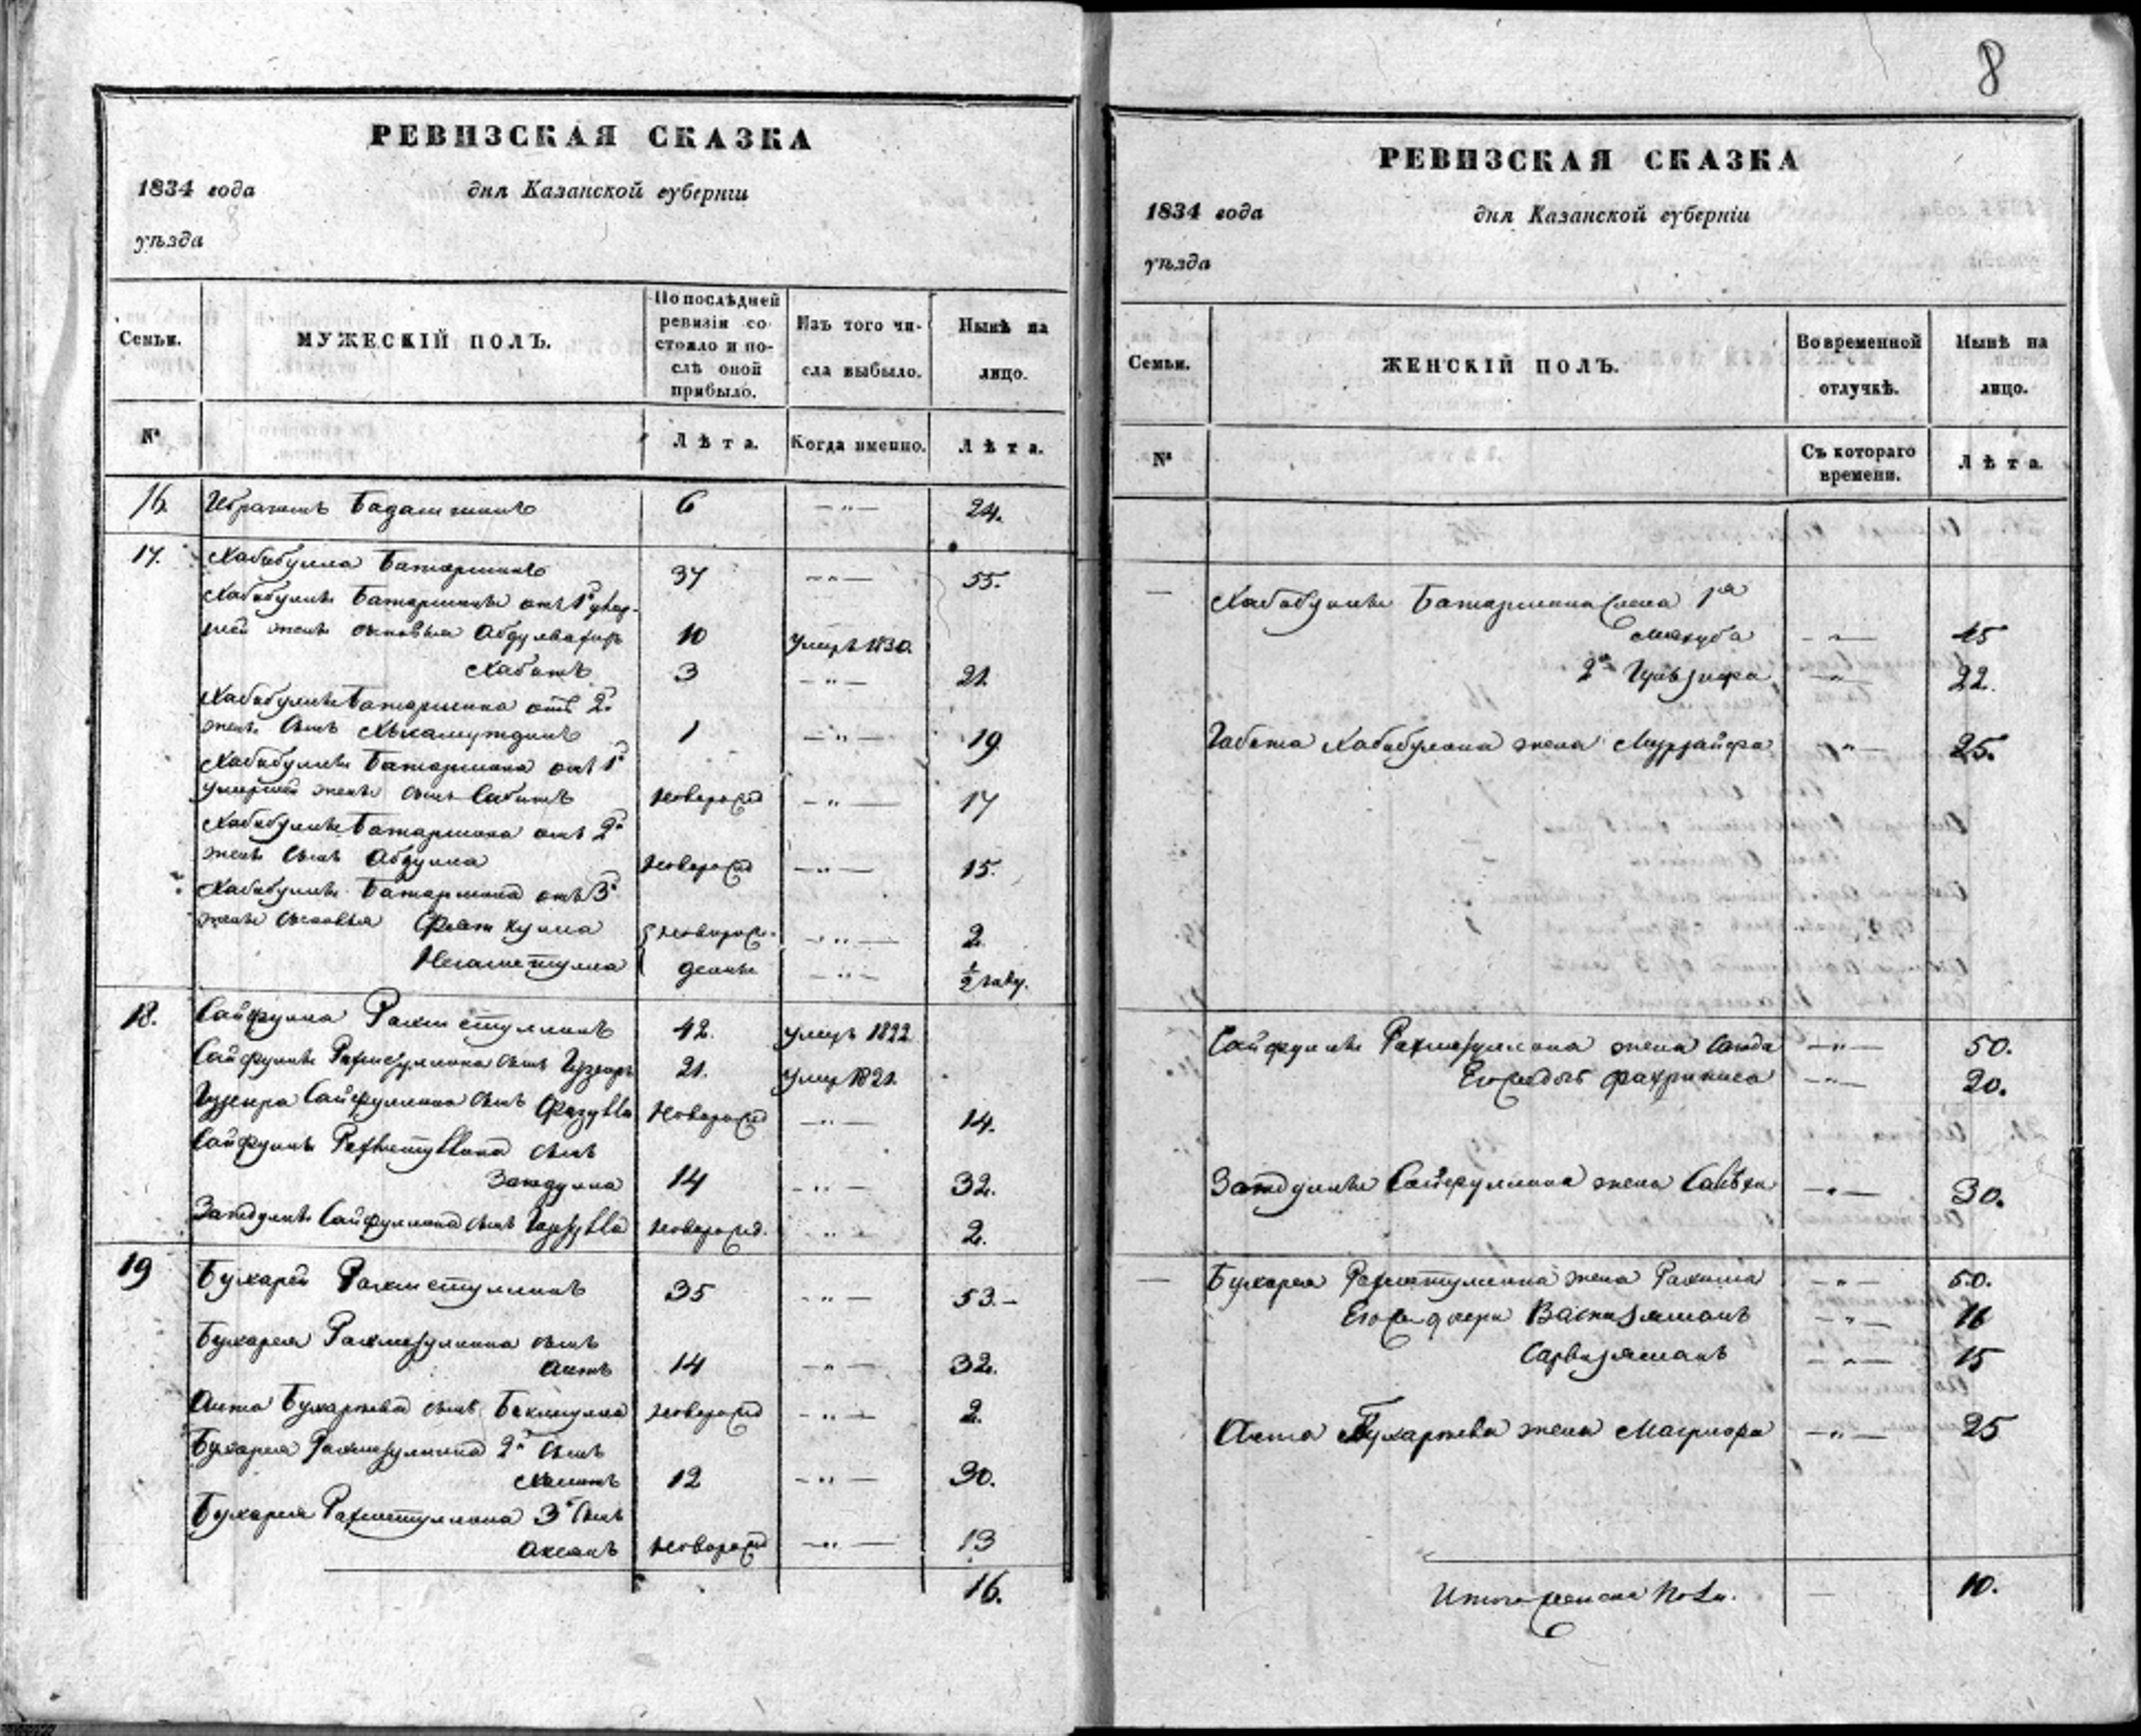 8
РЕВИЗСКАЯ СКАЗКА
1834 года дня Казанской губерніи
уѣзда
Семьи. МУЖЕСКІЙ ПОЛЪ. По послѣдней ревизіи состояло и послѣ оной прибыло. Изъ того числа выбыло. Нынѣ на лицо.
№ Лѣта. Когда именно. Лѣта.
16. Ибрагимъ 6 — " — 24.
17. Хабибулла Батаршинъ 37 — " — 55.
Хабибуллы Батаршина отъ 1й умер-
шей жены сыновья 10 умеръ 1830.
Хабитъ 3 — " — 21.
Хабибуллы Батаршина отъ 2й
жены сынъ 1 — " — 19
Хабибуллы Батаршина отъ 1й
умершей жены сынъ Сабитъ новорожд — " — 17
Хабибуллы Батаршина отъ 2й
жены сынъ Абдулла новорожд — " — 15.
Хабибуллы Батаршина отъ 3й
жены сыновья Фаткулла новорож- — " — 2.
Негаметулла денные — " — ½ году.
18. Сайфулла Рахметуллинъ 42. умеръ 1822
Сайфуллы Рахметуллина сынъ 21. умеръ 1821.
Сайфуллина сынъ новорожд — " — 14.
Сайфуллы Рахметуллина сынъ
Заидулла 14 — " — 32.
Заидуллы Сайфуллина сынъ новорожд. — " — 2.
19 Бухарей Рахметуллинъ 35 — " — 53.—
Бухарея Рахметуллина сынъ
Аитъ 14 — " — 32.
Аита Бухареева сынъ Бекмулла новорожд — " — 2.
Бухарея Рахметуллина 2й сынъ
12 — " — 30.
Бухарея Рахметуллина 3й сынъ
Ахсанъ новорожд — " — 13
16.
РЕВИЗСКАЯ СКАЗКА
1834 года дня Казанской губерніи
уѣзда
Семьи. ЖЕНСКІЙ ПОЛЪ. Во временной отлучкѣ. Нынѣ на лицо.
№ Съ котораго времени. Лѣта.
— Хабибуллы Батаршина жена 1я
Махуба — " — 45
2я Гульзифа — " — 22.
Хабибуллина жена — " — 25.
Сайфуллы Рахметуллина жена — " — 50.
Его ж дочь Фахриниса — " — 20.
Заидуллы Сайфуллина жена — " — 30.
— Бухарея Рахметуллина жена Рахима — " — 50.
Его ж дочери — " — 16
Сарвизяманъ — " — 15
Аита Бухареева жена — " — 25
Итого женска пола. — 10.